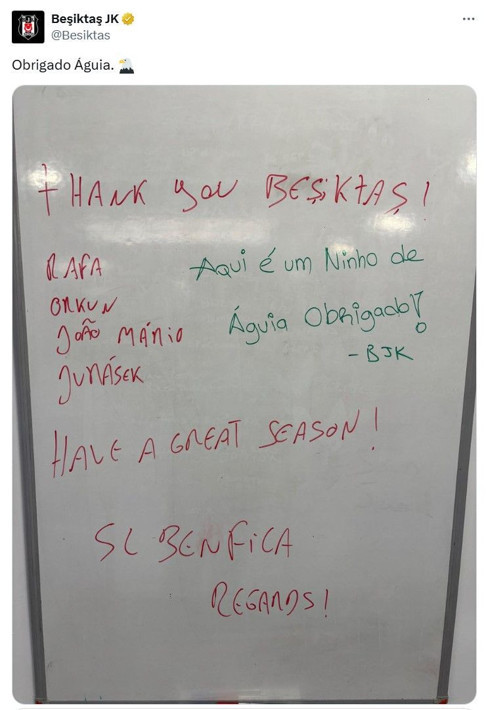 Beşiktaş JK
@Besiktas
Obrigado Águia. 🦅
THANK you BEŞİKTAŞ!
RAFA
ORKUN
JOÃO MÁRIO
JURÁSEK
Aqui é um Ninho de
Águia Obrigado!
- BJK
HAVE A GREAT SEASON!
SL BENFICA
REGARDS!